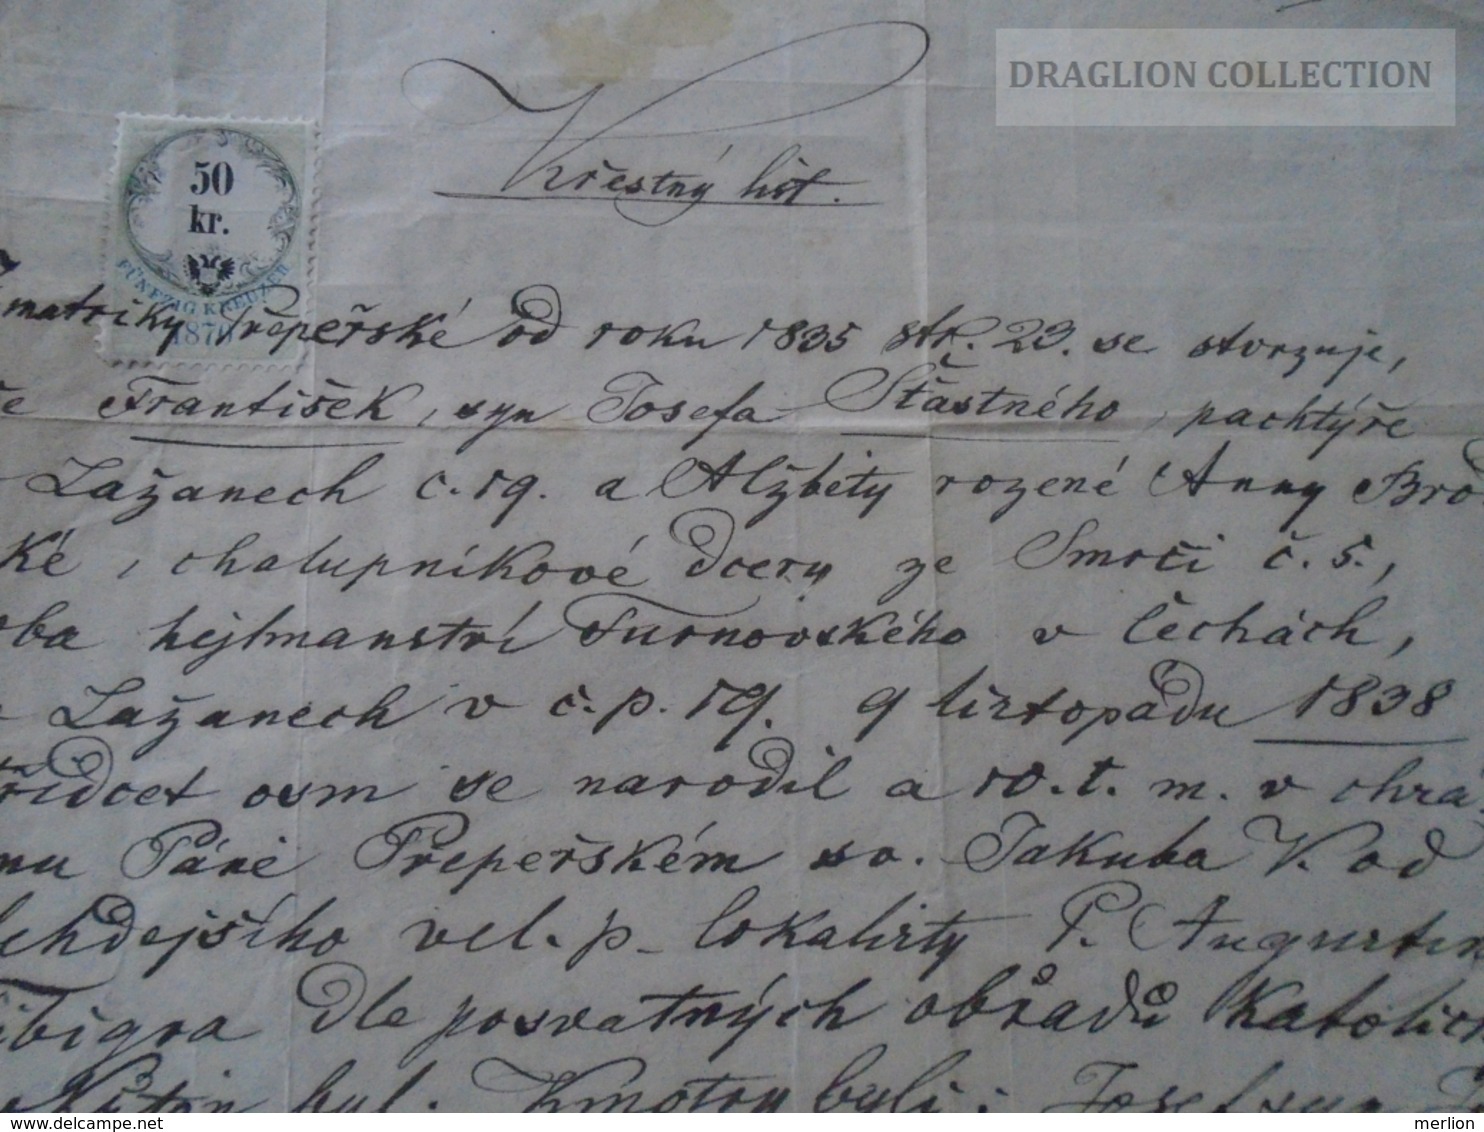 DRAGLION COLLECTION
Křestný list.
50
kr.
FÜNFZIG KREUZER
matriky Přepeřské od roku 1835 str. 23. se stvrzuje,
že František, syn Josefa Šťastného, pachtýře
Lažanech č. 19. a Alžběty rozené Anny Brod
ké, chalupníkové dcery ze Smrčí č. 5.,
oba hejtmanství Turnovského v Čechách,
Lažanech v č. p. 19. 9 listopadu 1838
třidcet osm se narodil a 10. t. m. v chrá
mu Páně Přepeřském sv. Jakuba V. od
tehdejšího vel. p. lokalisty P. Augustin
dle posvatných obřadů Katolick
byl. Kmotry byli: Josef syn
merlion